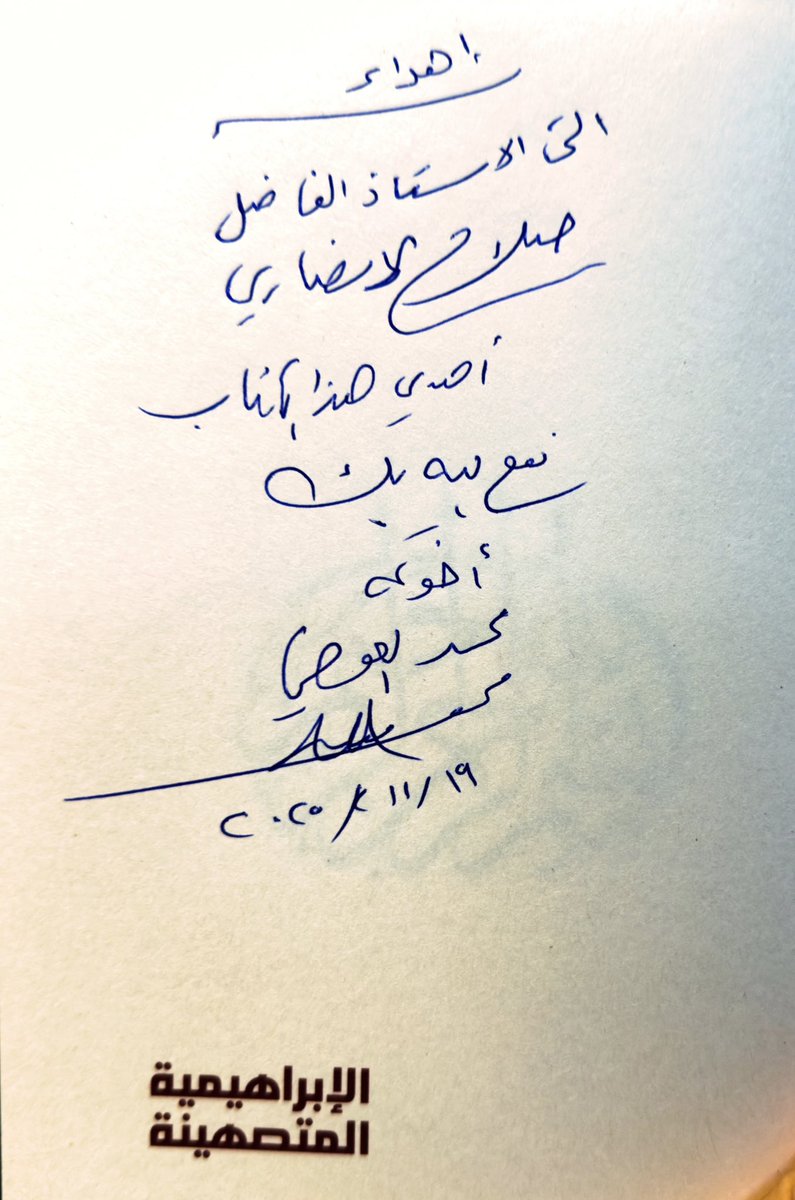 اهداء
الى الاستاذ الفاضل
صلاح الانصاري
أهدي هذا الكتاب
نفع به بك
أخوكم
محمد العوضي
١٩/ ١١/ ٢٠٢٥
الإبراهيمية
المتصهينة